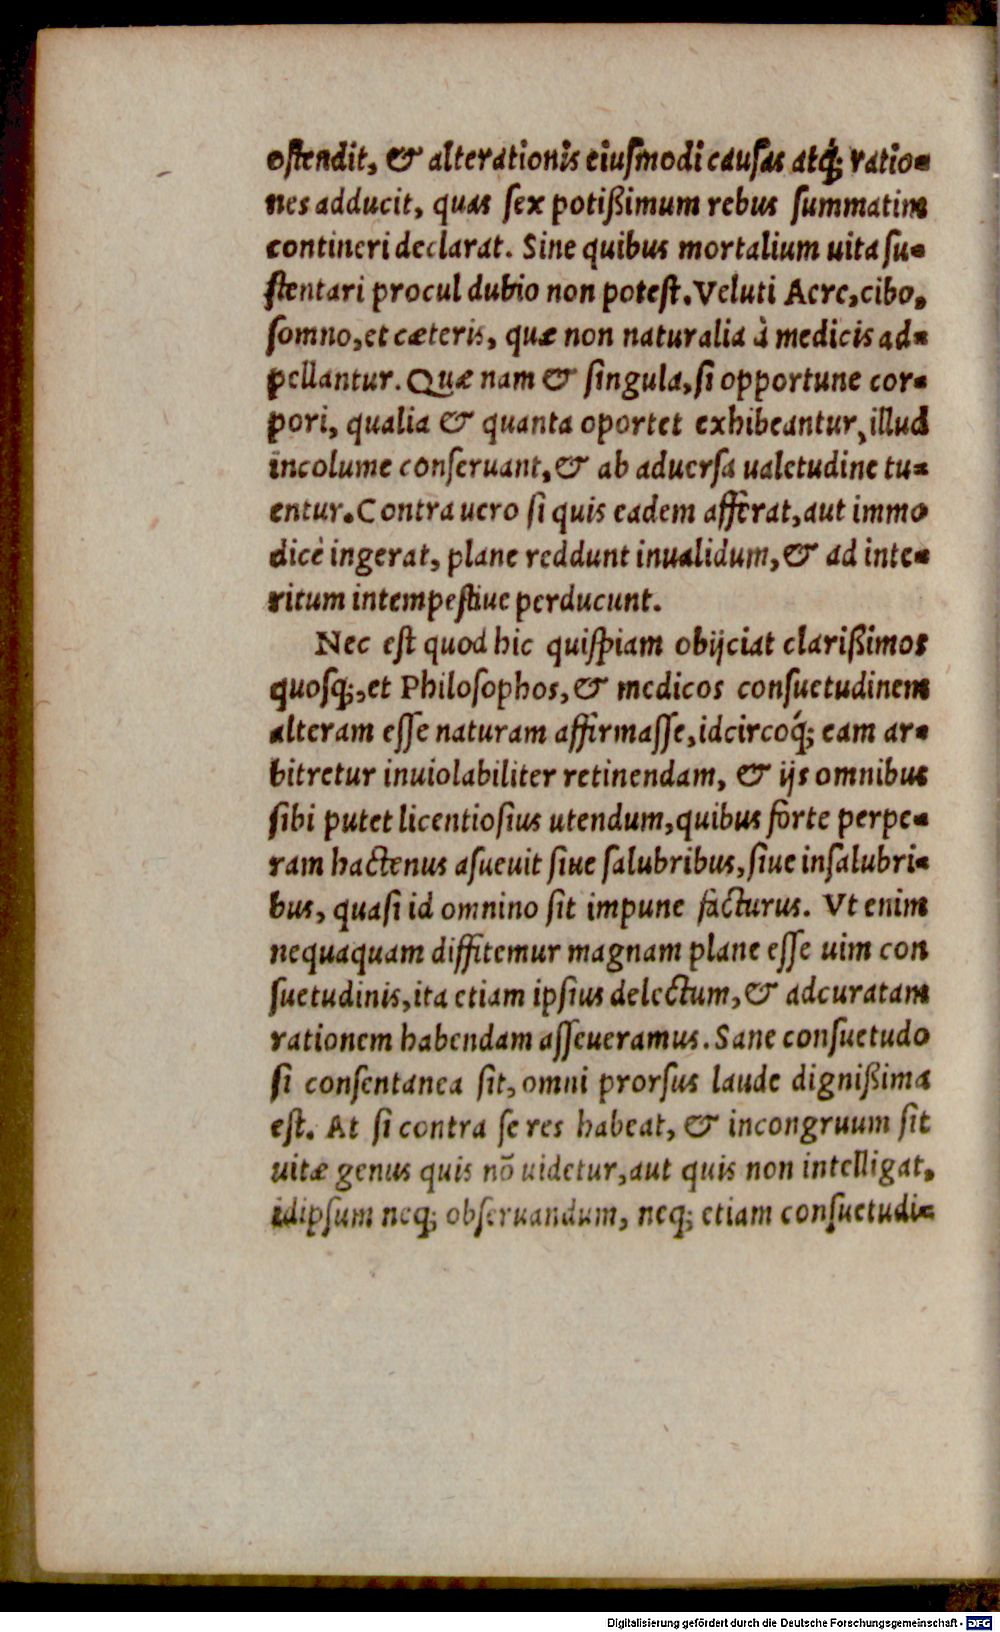 oſtendit, & alterationis eiuſmodi cauſas atq́; ratio=
nes adducit, quas ſex potißimum rebus ſummatim
contineri declarat. Sine quibus mortalium uita ſu=
ſtentari procul dubio non poteſt. Veluti Aere, cibo,
ſomno, et cæteris, quæ non naturalia à medicis ad=
pellantur. Quæ nam & ſingula, ſi opportune cor=
pori, qualia & quanta oportet exhibeantur, illud
incolume conſeruant, & ab aduerſa ualetudine tu=
entur. Contra uero ſi quis eadem afferat, aut immo
dicè ingerat, plane reddunt inualidum, & ad inte=
ritum intempeſtiue perducunt.
Nec eſt quod hic quiſpiam obijciat clarißimos
quoſq;, et Philoſophos, & medicos conſuetudinem
alteram eſſe naturam affirmaſſe, idcircoq́; eam ar=
bitretur inuiolabiliter retinendam, & ijs omnibus
ſibi putet licentioſius utendum, quibus forte perpe=
ram hactenus aſueuit ſiue ſalubribus, ſiue inſalubri=
bus, quaſi id omnino ſit impune facturus. Vt enim
nequaquam diffitemur magnam plane eſſe uim con
ſuetudinis, ita etiam ipſius delectum, & adcuratam
rationem habendam aſſeueramus. Sane conſuetudo
ſi conſentanea ſit, omni prorſus laude dignißima
eſt. At ſi contra ſe res habeat, & incongruum ſit
uitæ genus quis nō uidetur, aut quis non intelligat,
idipſum neq; obſeruandum, neq; etiam conſuetudi=
Digitalisierung gefördert durch die Deutsche Forschungsgemeinschaft - DFG